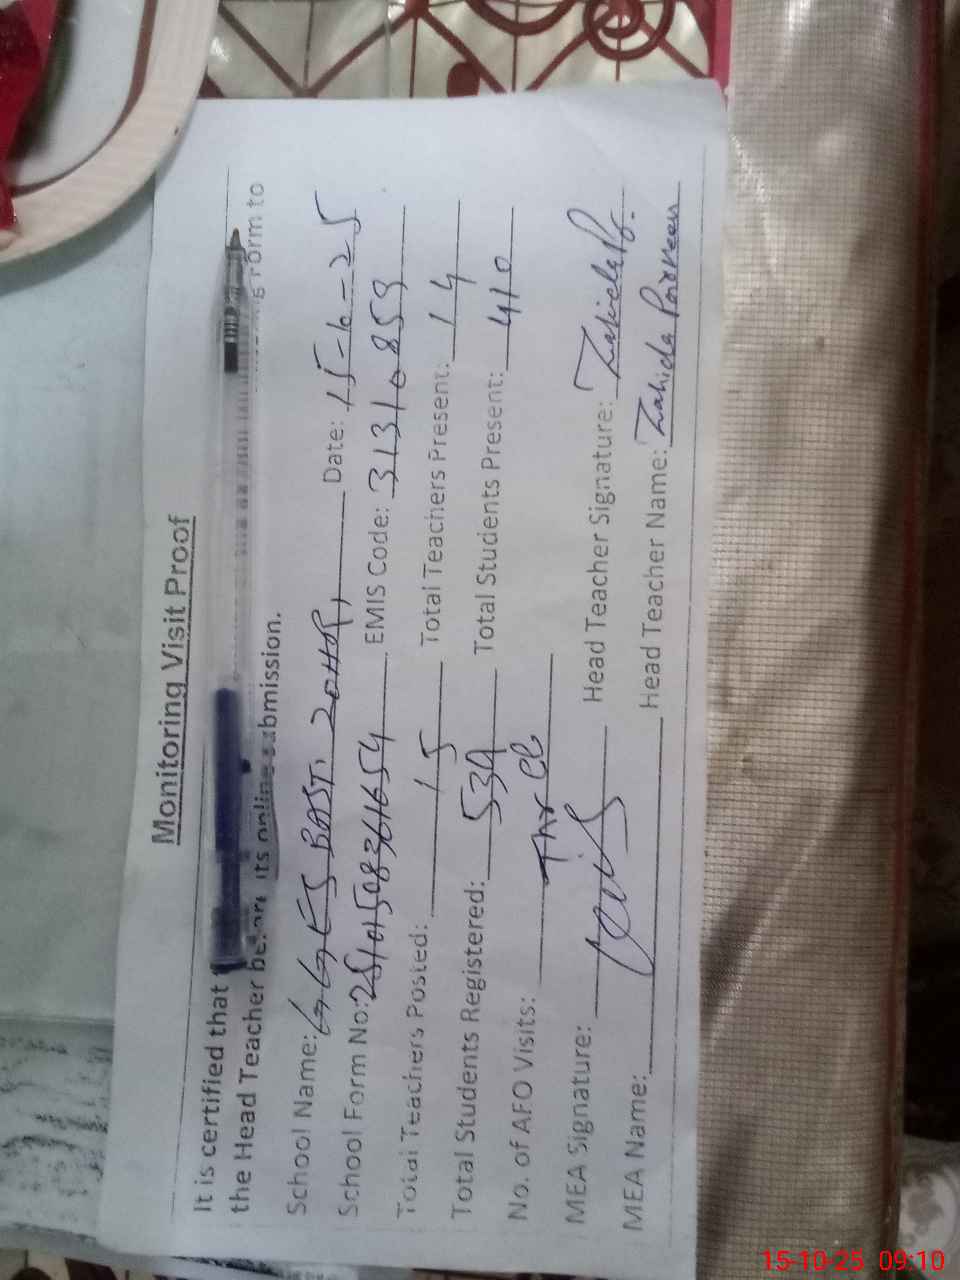 Monitoring Visit Proof
It is certified that
the Head Teacher before its online submission.
School Name: GGES BAST. ZOHOR, Date: 15-10-25
School Form No: 25101508361654 EMIS Code: 31310853
Total Teachers Posted: 15 Total Teachers Present: 14
Total Students Registered: 539 Total Students Present: 410
No. of AFO Visits:
MEA Signature: Head Teacher Signature: Zahida P.
MEA Name: Head Teacher Name: Zahida Parveen
15-10-25 09:10